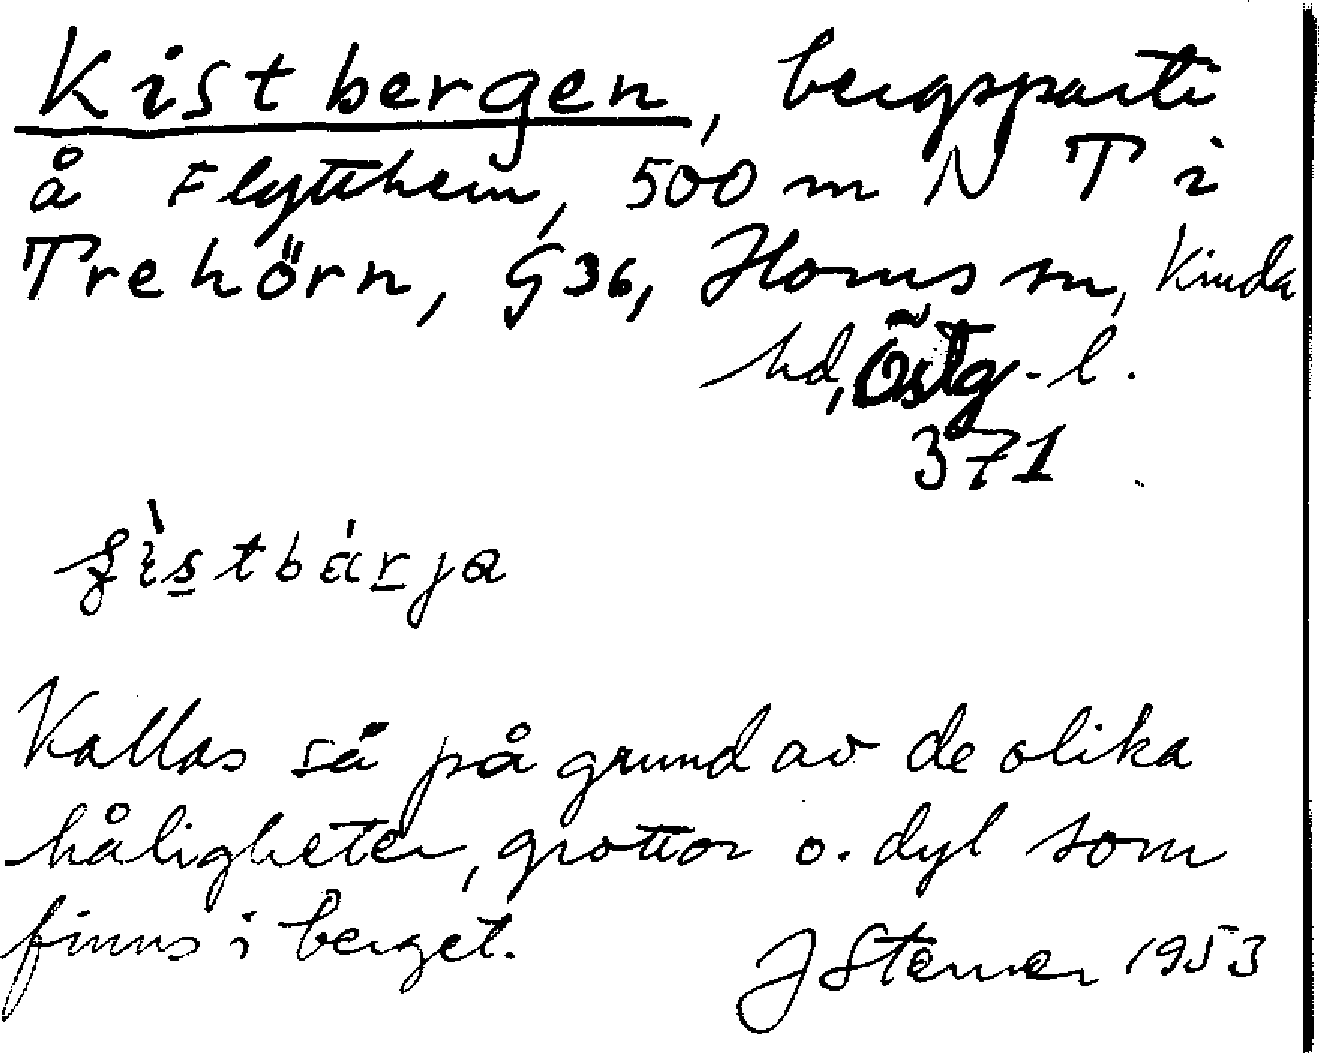 Kistbergen, bergsparti
å Flytthem, 500 m N T i
Trehörn, G36, Horns sn, Kinda
hd, Östg.-l.
371
Kallas så på grund av de olika
håligheter, grottor o. dyl som
finns i berget.
J Sterner 1953